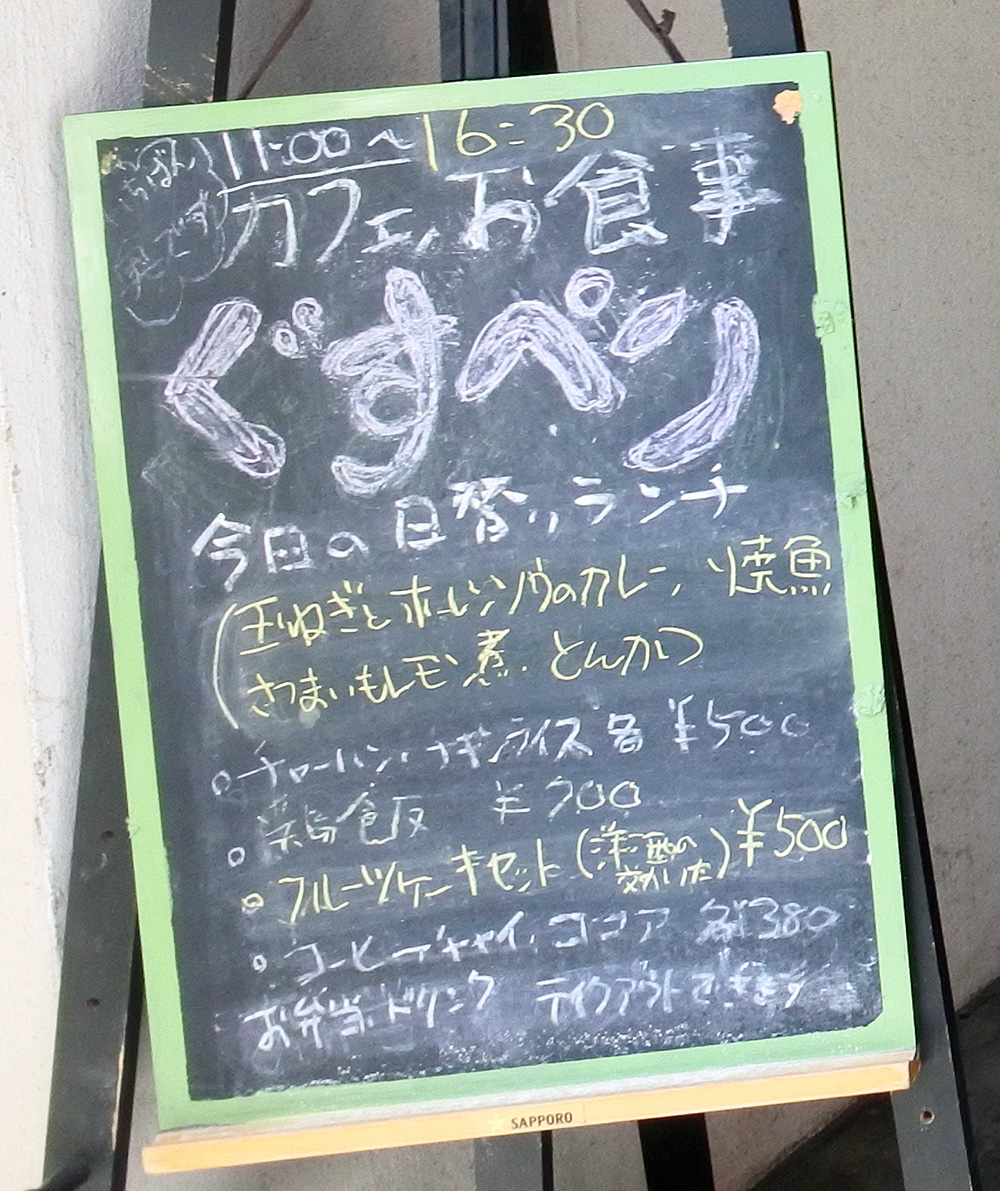 11:00〜16:30
カフェ、お食事
ぐすぺり
今日の日替りランチ
(玉ねぎとホーレンソウのカレー、焼魚
さつまいもレモン煮、とんかつ
○チャーハン、チキンライス 各¥500
○鶏飯 ¥700
○フルーツケーキセット(洋酒の効いた)¥500
○コーヒー、チャイ、ココア 各¥380
お弁当、ドリンク テイクアウトできます
SAPPORO